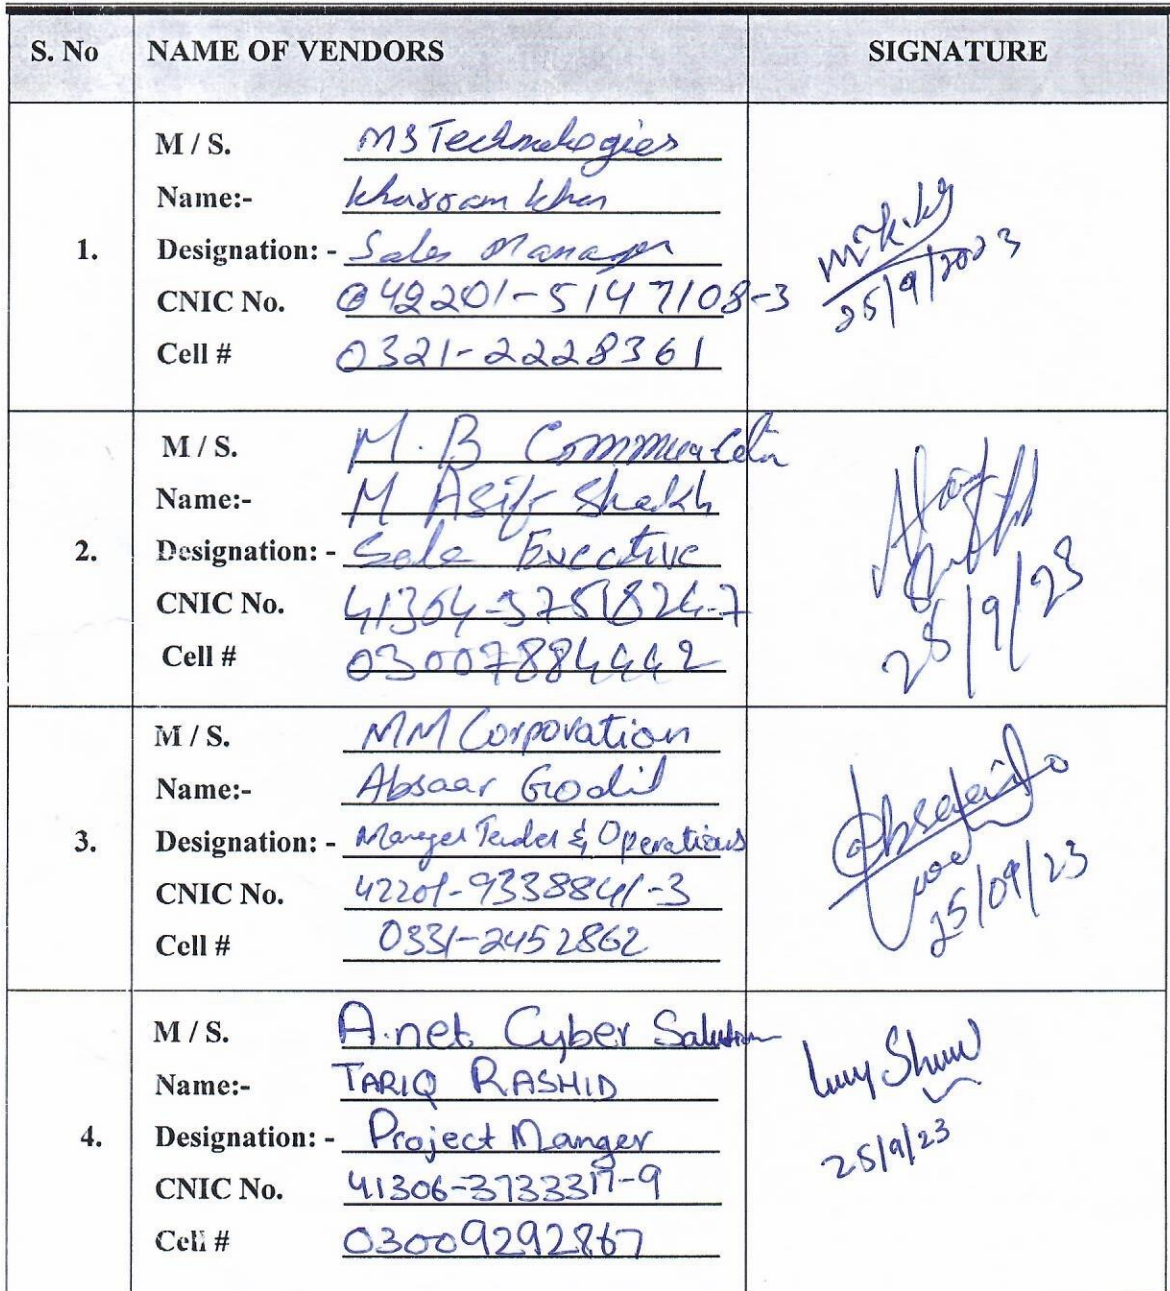 S. No NAME OF VENDORS SIGNATURE
1.
M / S. MS Technologies
Name:- Khurram Khan
Designation: - Sales Manager
CNIC No. 42201-5147108-3
Cell # 0321-2228361
25/9/2023
2.
M / S. M.B Communication
Name:- M Asif Shaikh
Designation: - Sale Executive
CNIC No. 41304-5751824-7
Cell # 03007884442
25/9/23
3.
M / S. MM Corporation
Name:- Absaar Godil
Designation: - Manager Tender & Operations
CNIC No. 42201-9338841-3
Cell # 0331-2452862
25/09/23
4.
M / S. A.net Cyber Salution
Name:- TARIQ RASHID
Designation: - Project Manger
CNIC No. 41306-3733317-9
Cell # 03009292867
25/9/23